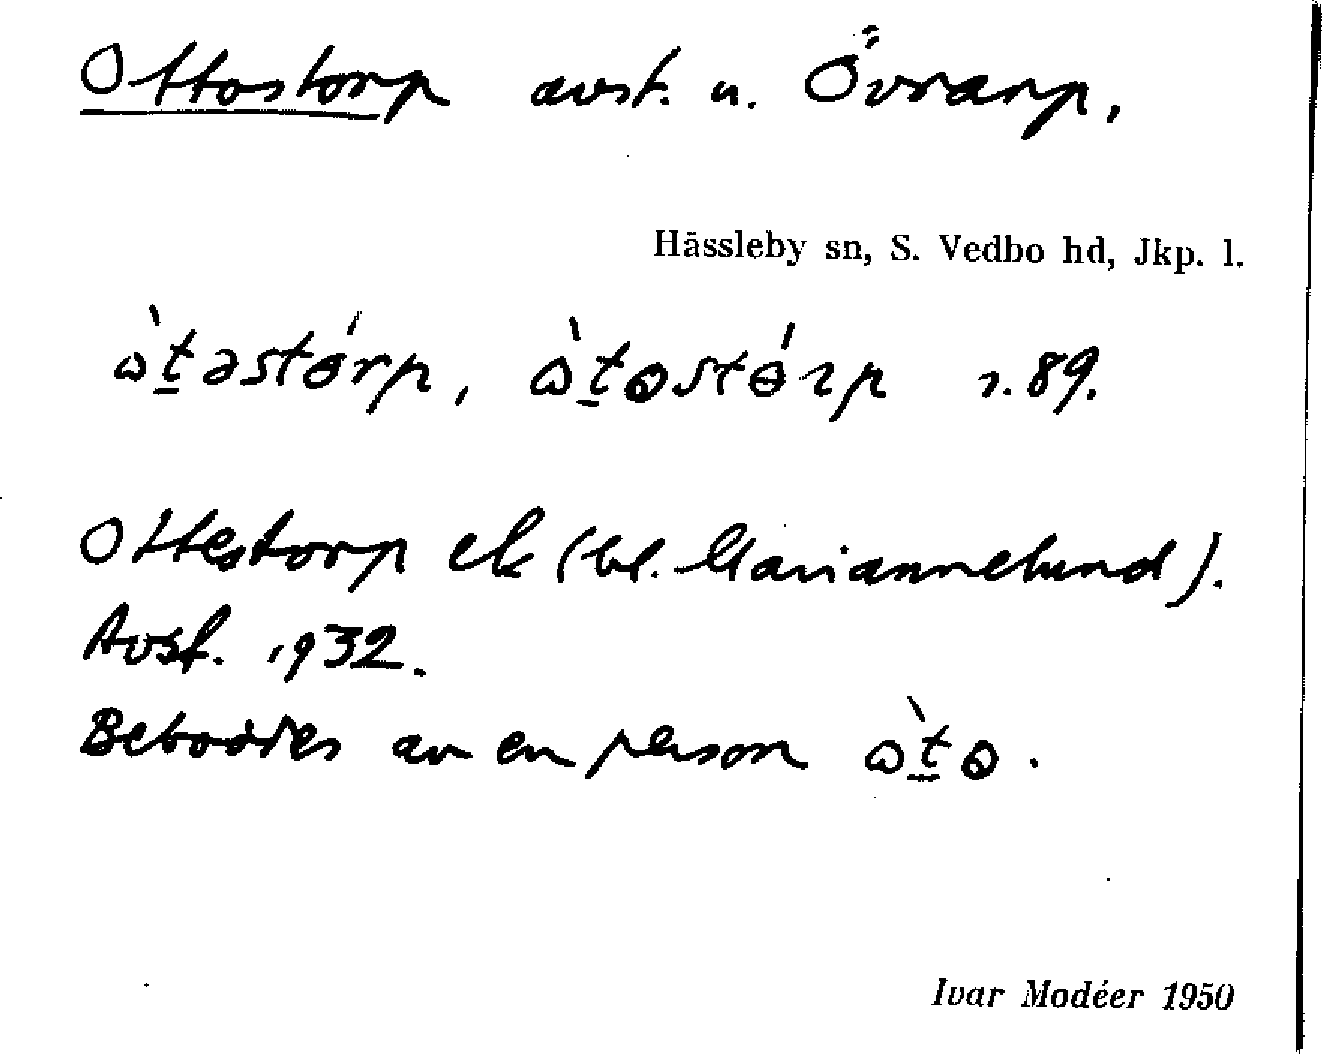 Ottostorp avst. u. Övrarp,
Hässleby sn, S. Vedbo hd, Jkp. l.
r. 89.
Ottestorp ek (bl. Mariannelund).
Avsf. 1932.
Beboddes av en person
Ivar Modéer 1950